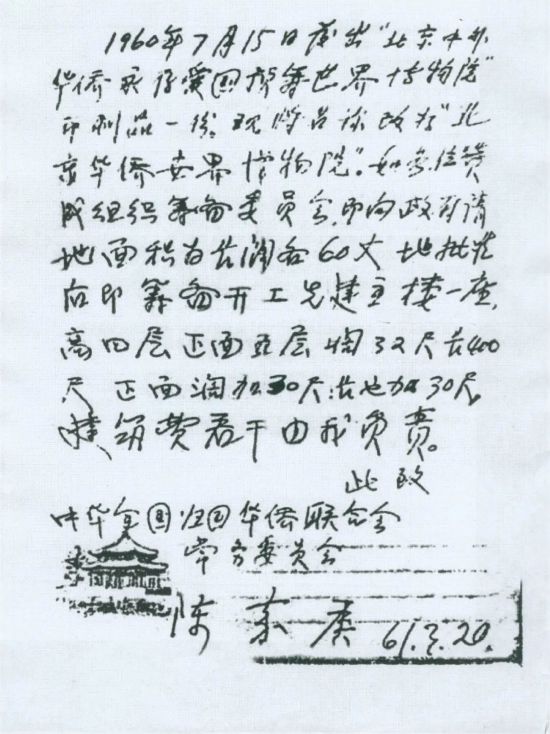 1960年7月15日发出“北京中外
华侨永存爱国模筹世界博物院”
印刷品一份,现将名称改为“北
京华侨世界博物院”。如委员赞
成组织筹备委员会,即向政府请
地面积为长阔各60丈地批准
后即筹备开工先建主楼一座,
高四层正面五层阔32尺长400
尺正面阔加30尺,长也加30尺,
建筑费若干由我负责。
此致
中华全国归国华侨联合会
常务委员会
陈嘉庚 61.3.20.